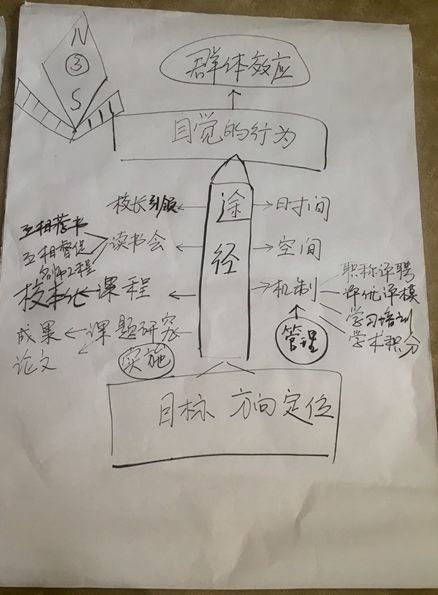 N
③
S
群体效应
自觉的行为
途径
校长引领
互相荐书
互相督促
名师工程
读书会
校本化课程
成果
论文
课题研究
实施
时间
空间
机制
职称评聘
评优评模
学习培训
学术积分
管理
目标 方向定位